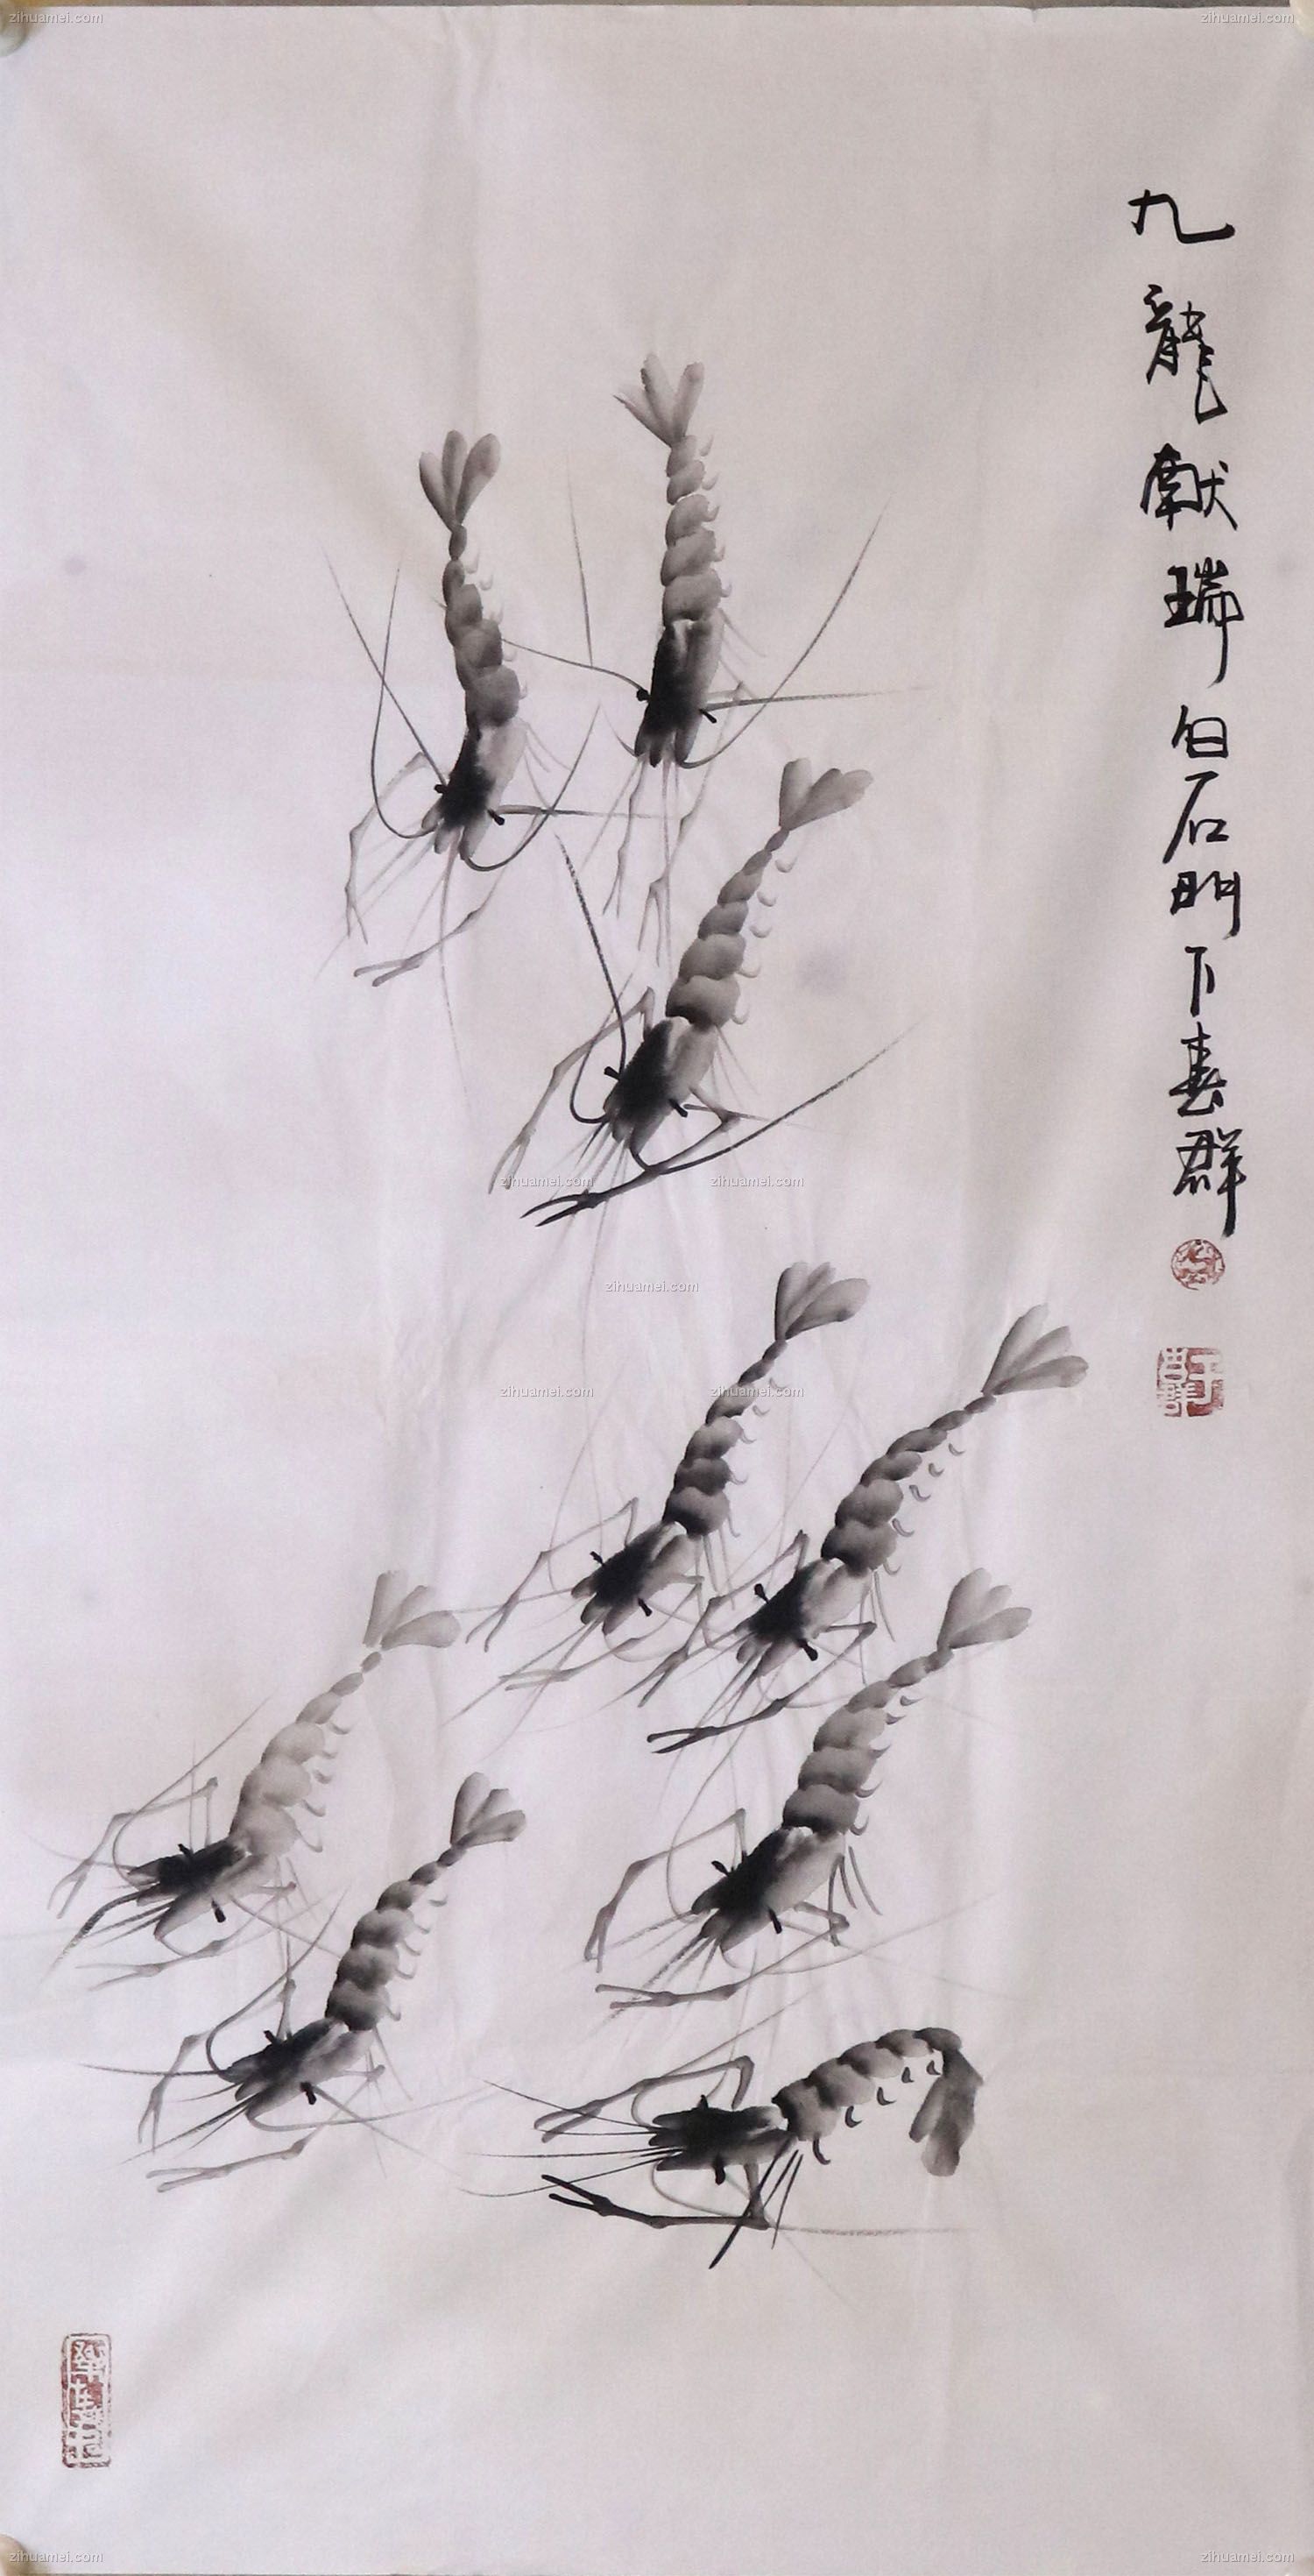 zihuamei.com
zihuamei.com
九龍獻瑞 白石門下春群
zihuamei.com
zihuamei.com
zihuamei.com
zihuamei.com
zihuamei.com
zihuamei.com
zihuamei.com